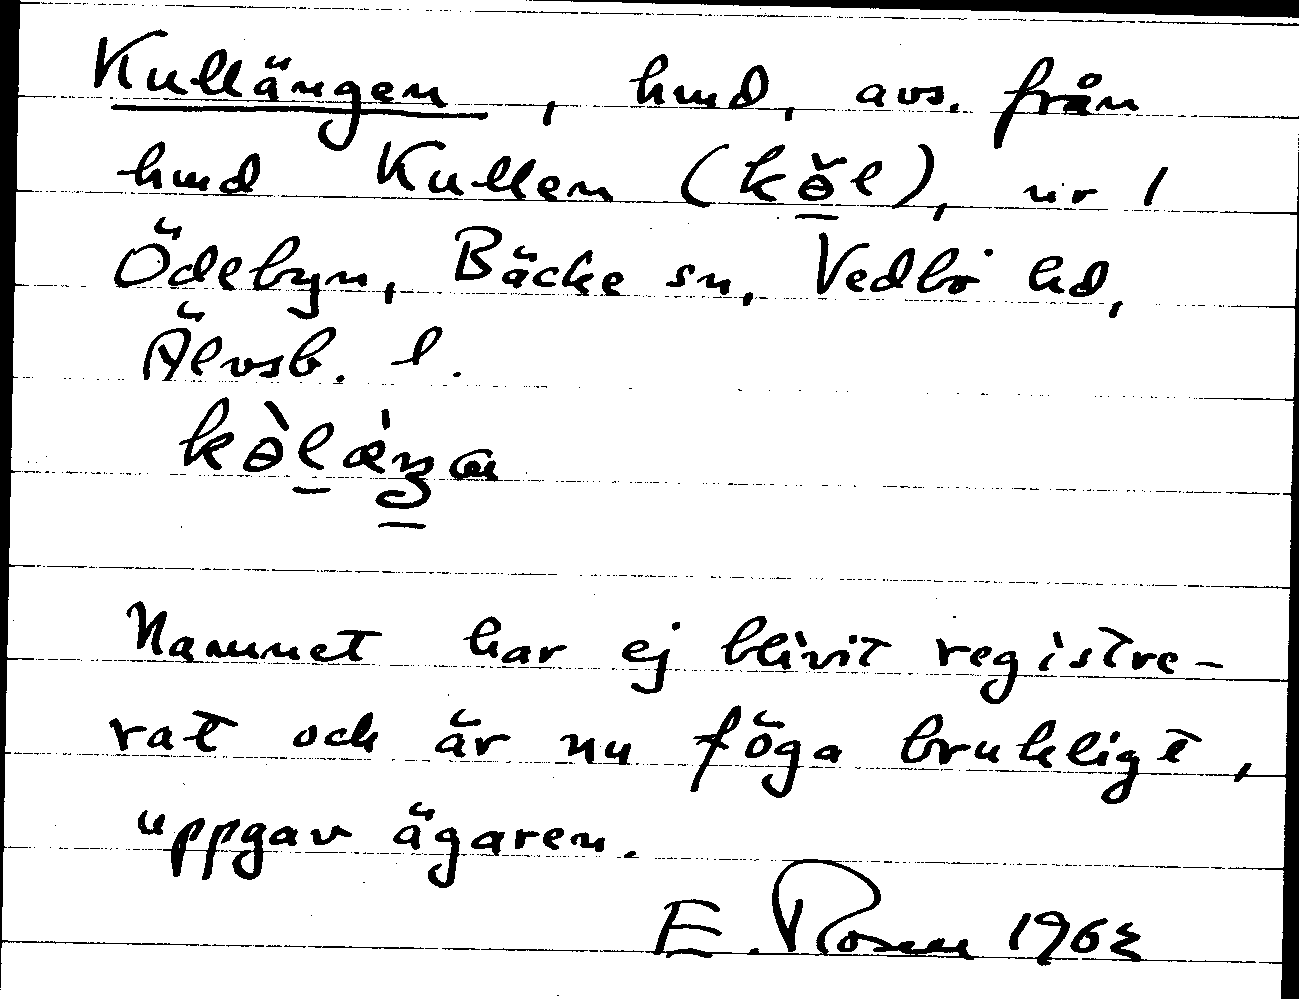 Kullängen, hmd, avs. från
hmd Kullen (kɵ̆l), nr 1
Ödebyn, Bäcke sn, Vedbo hd,
Älvsb. l.
Namnet har ej blivit registre-
rat och är nu föga brukligt,
uppgav ägaren.
E. Rosen 1963